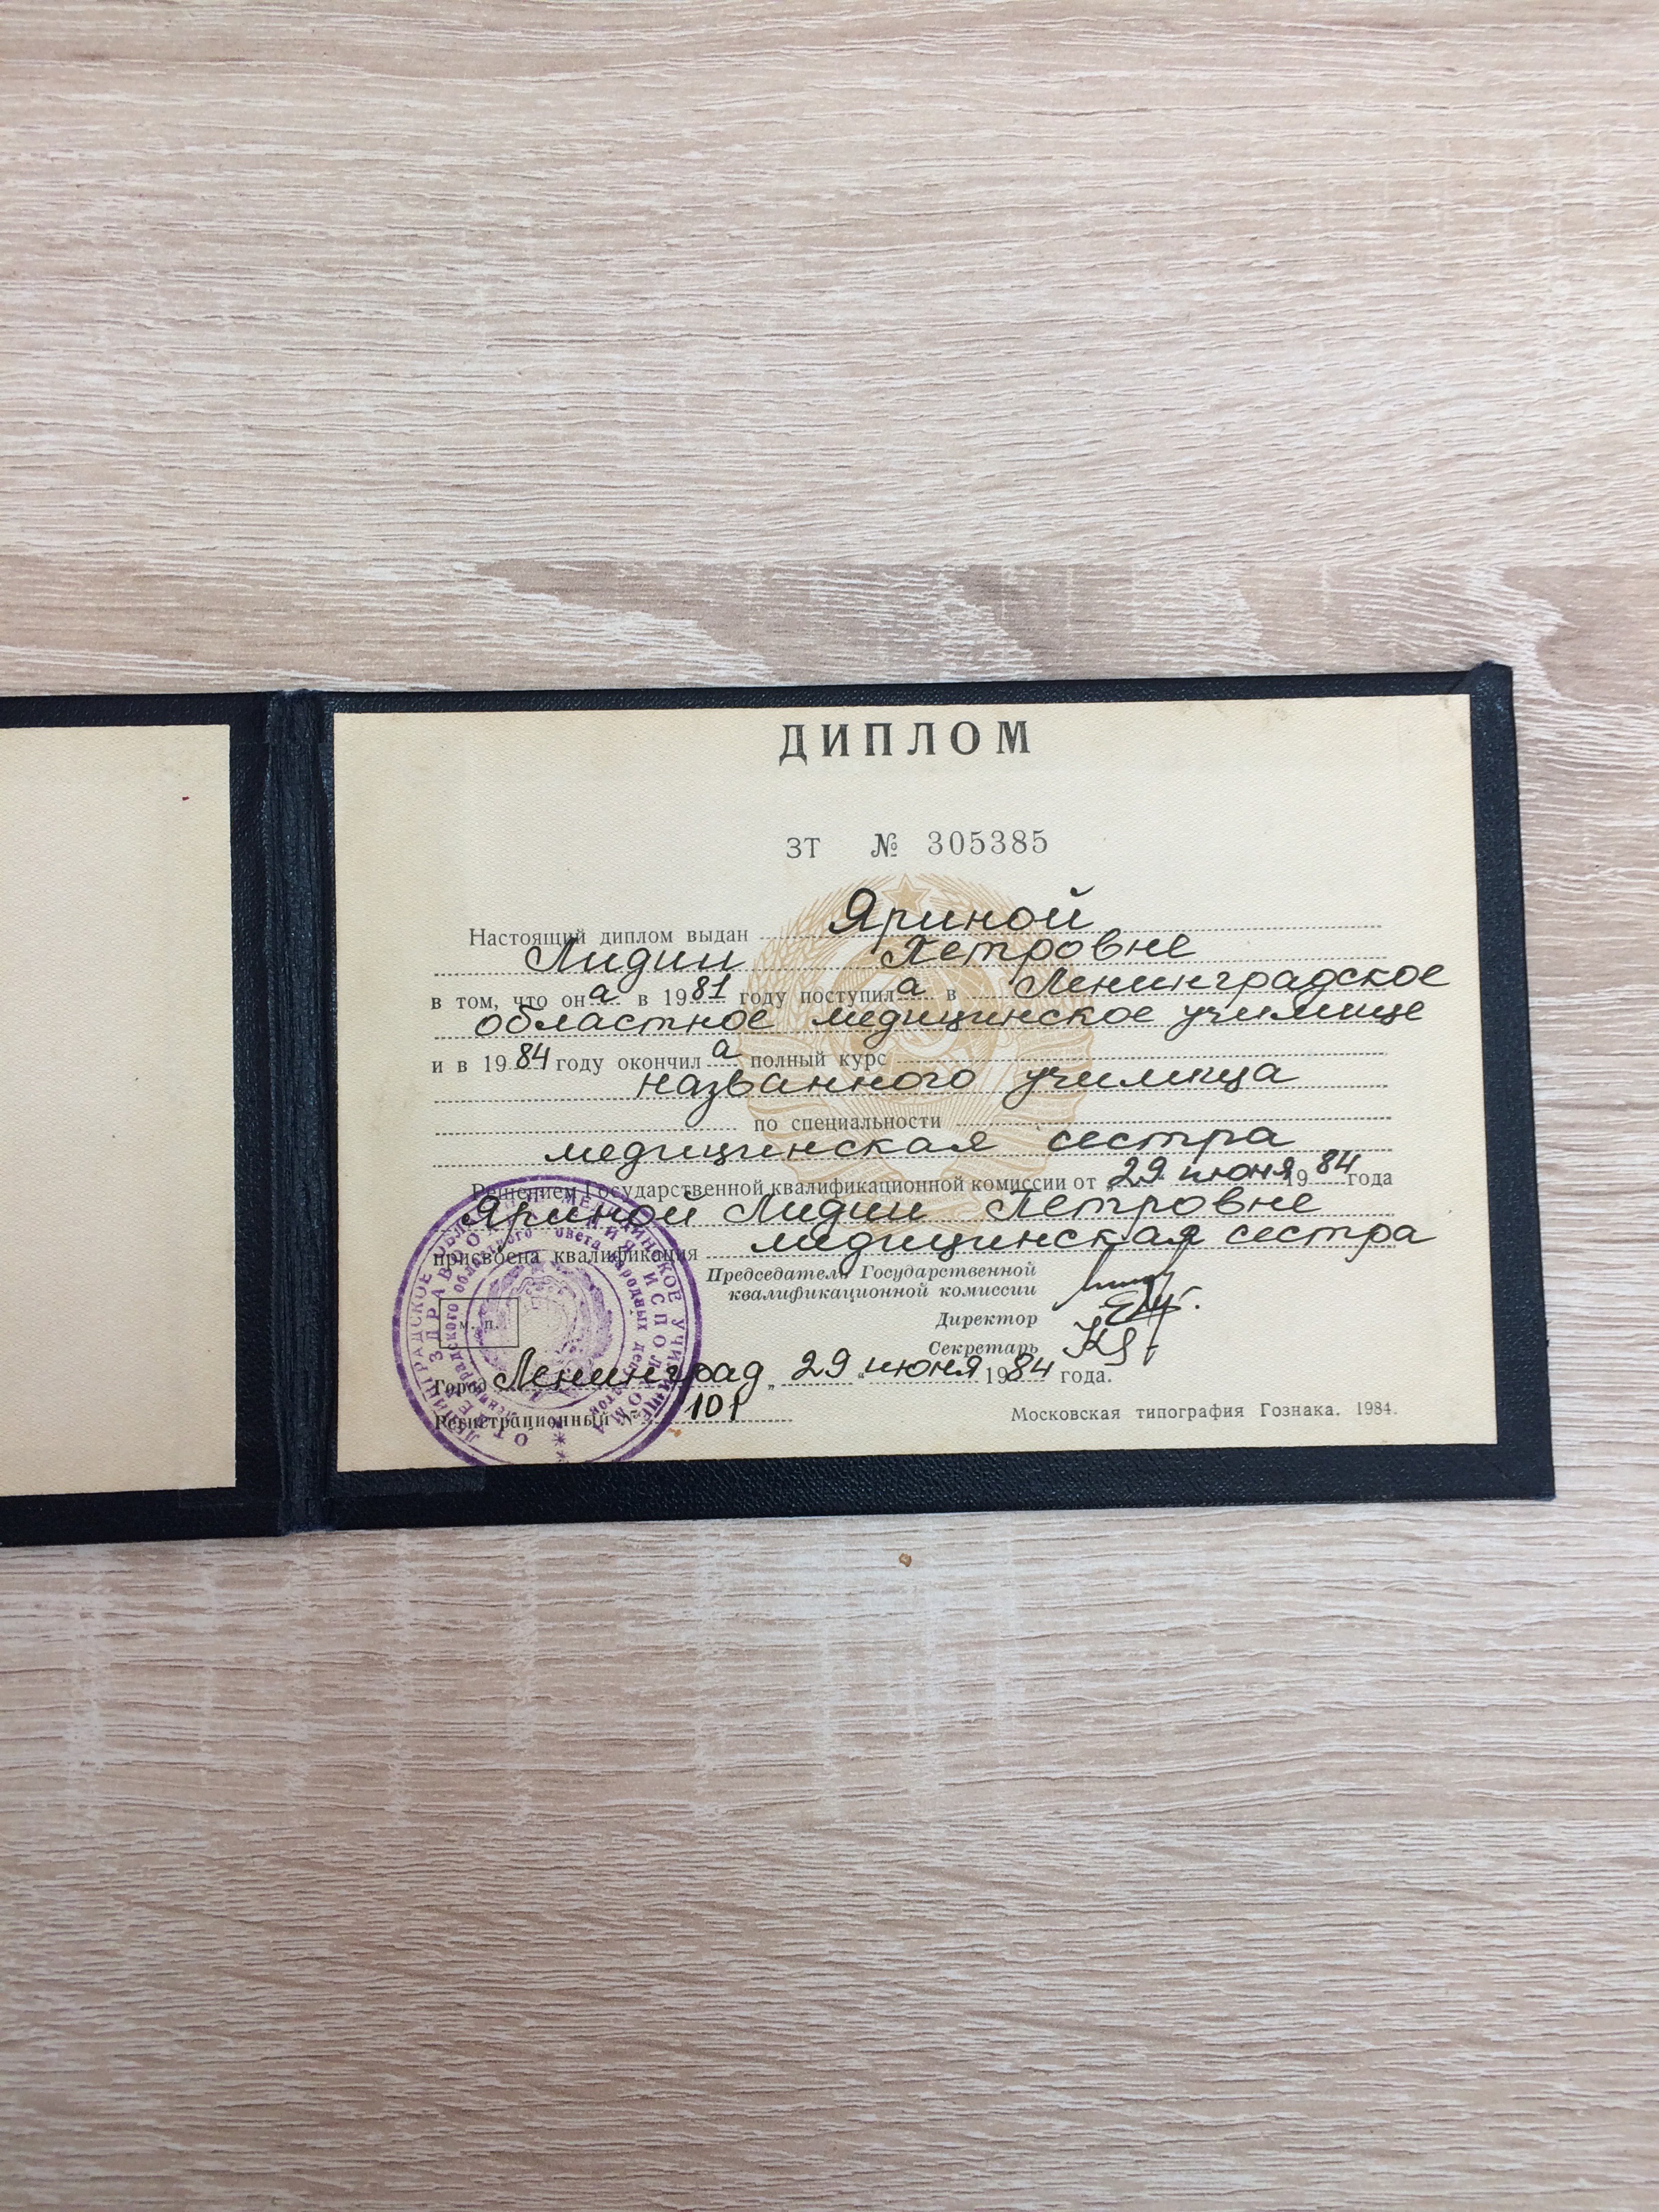 ДИПЛОМ
ЗТ № 305385
Настоящий диплом выдан Яриной
Лидии Петровне
в том, что она в 1981 году поступила в Ленинградское
областное медицинское училище
и в 1984 году окончила полный курс
названного училища
по специальности
медицинская сестра
Решением Государственной квалификационной комиссии от „29 июня 1984 года
Яриной Лидии Петровне
присвоена квалификация медицинская сестра
Председатель Государственной
квалификационной комиссии
Директор
Секретарь
м. п.
Город Ленинград „29 “ июня 1984 года.
Регистрационный №
Московская типография Гознака. 1984.